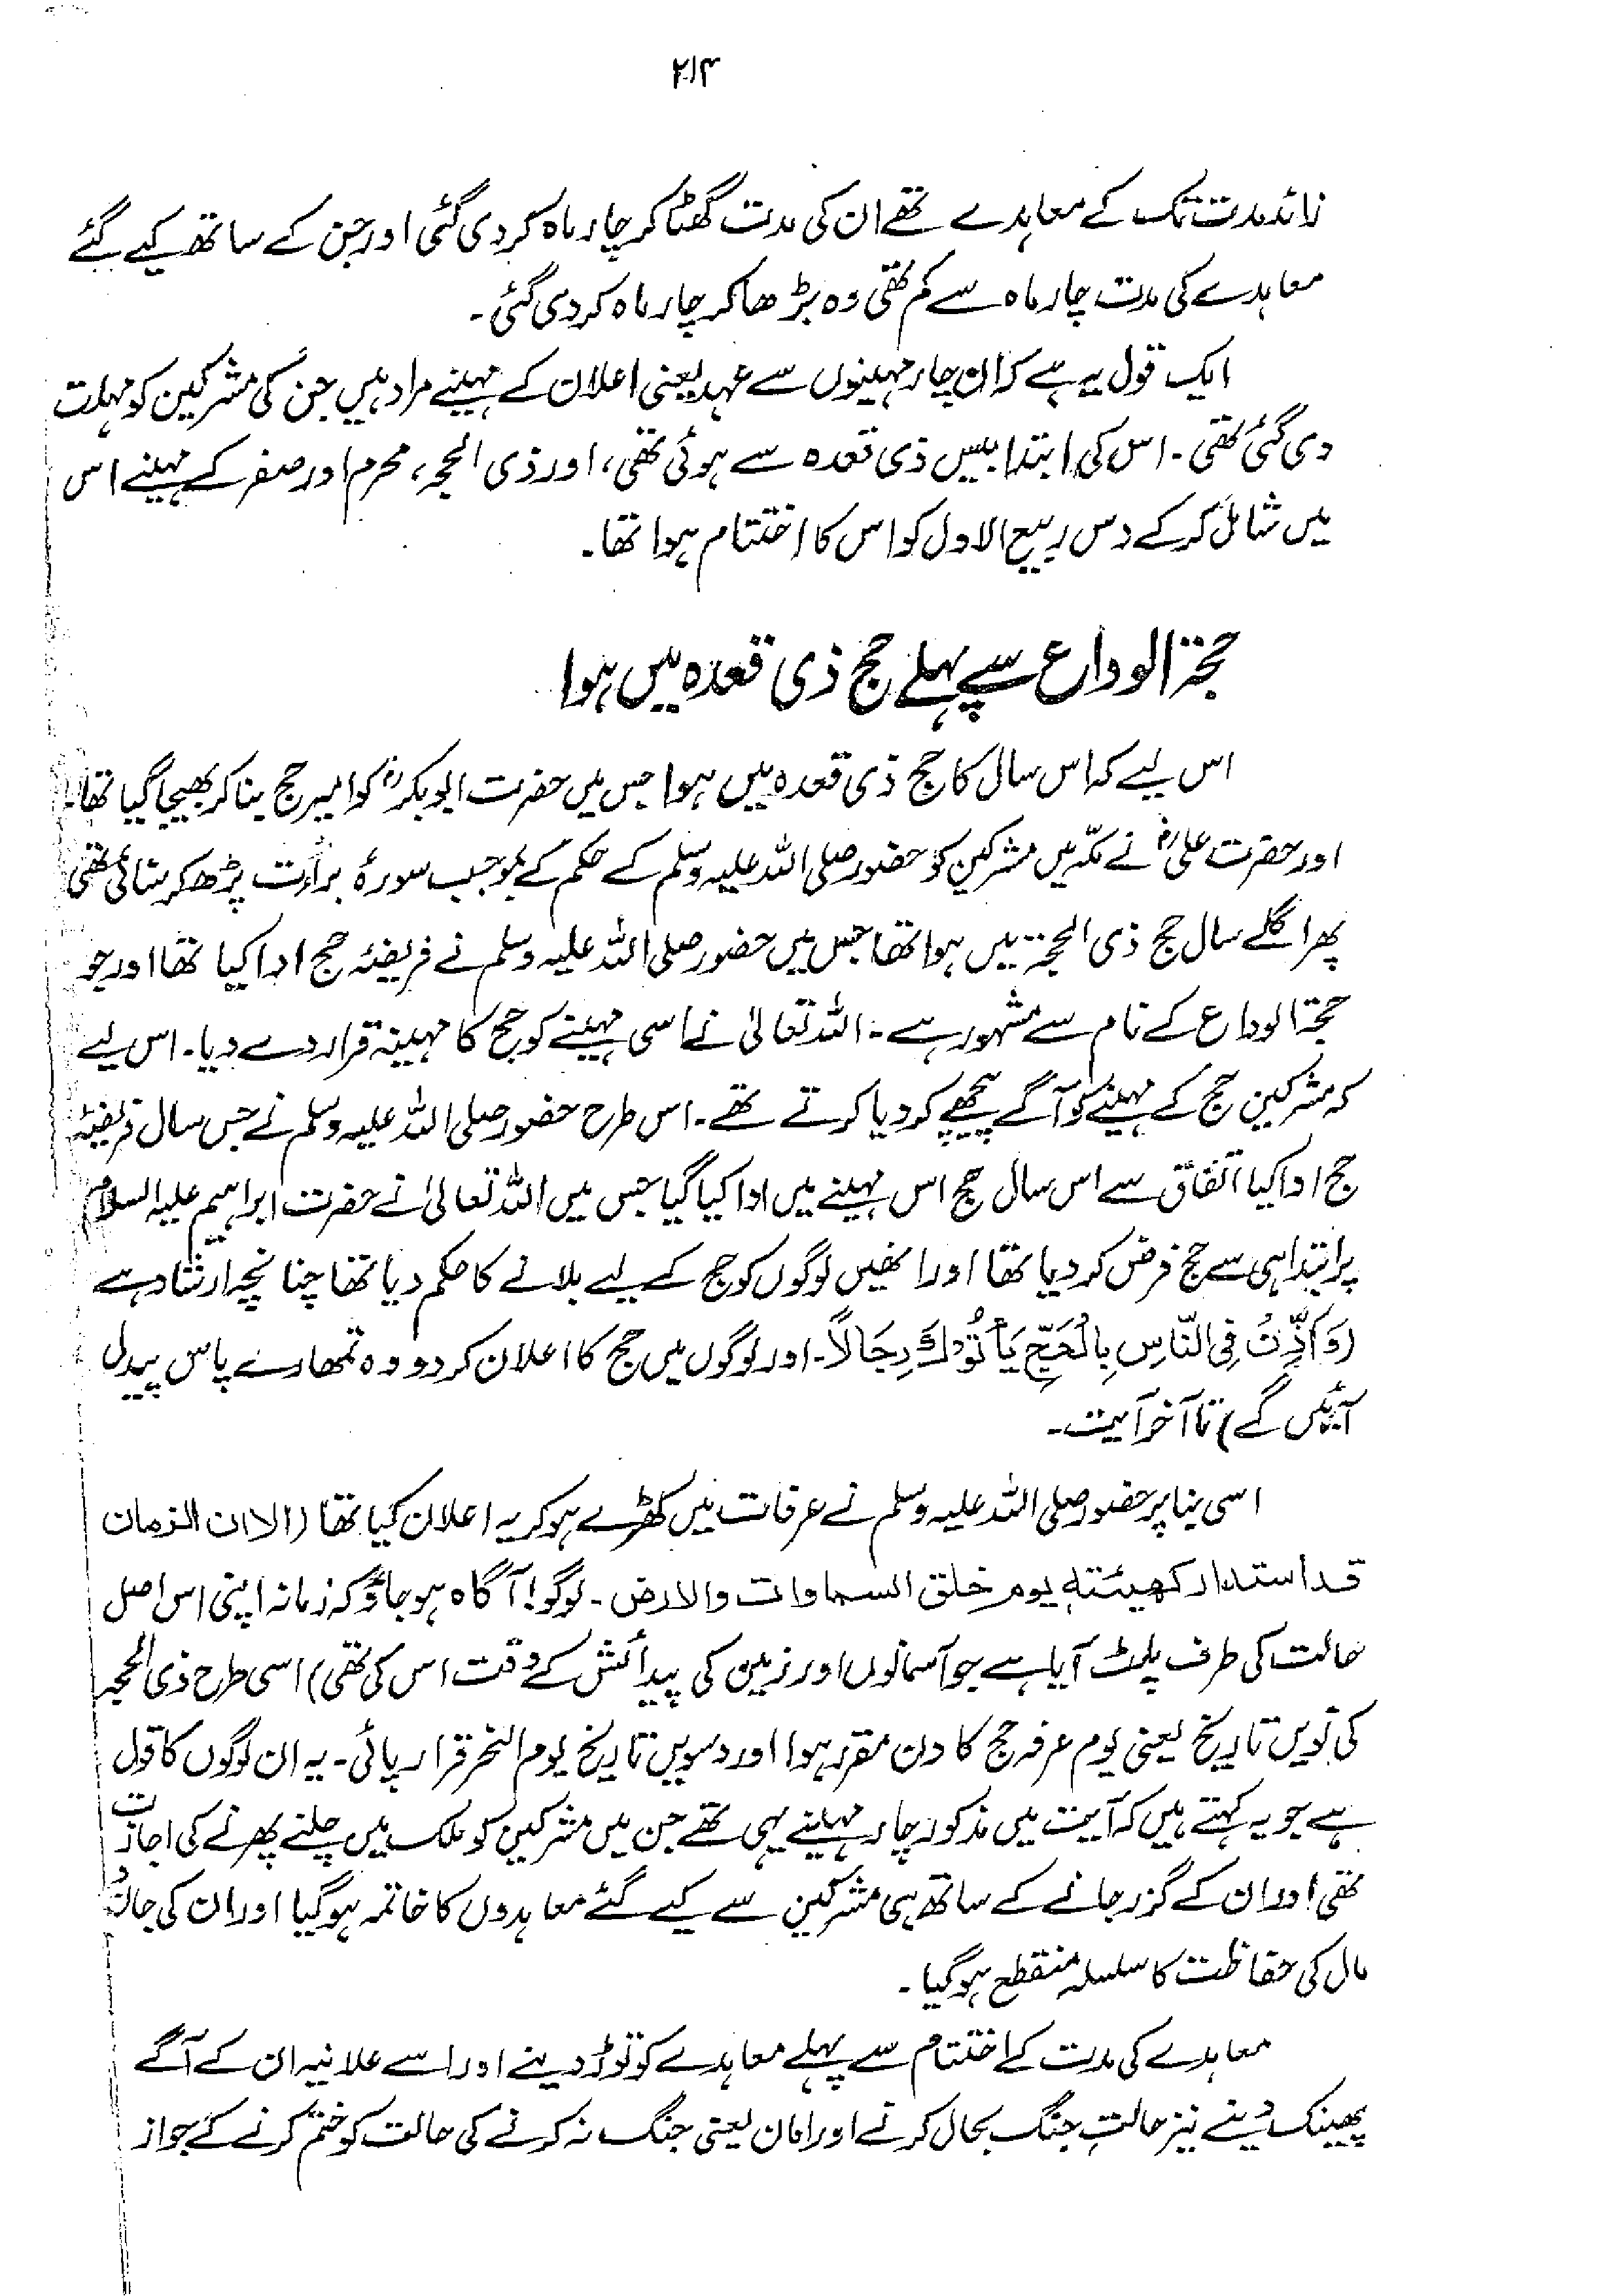 ۲۱۴
زائد مدت تک کے معاہدے تھے ان کی مدت گھٹا کر چار ماہ کر دی گئی اور جن کے ساتھ کیے گئے
معاہدے کی مدت چار ماہ سے کم تھی وہ بڑھا کر چار ماہ کر دی گئی۔
ایک قول یہ ہے کہ ان چار مہینوں سے عہد یعنی اعلان کے مہینے مراد ہیں جن کی مشرکین کو مہلت
دی گئی تھی۔ اس کی ابتدا بیس ذی قعدہ سے ہوئی تھی، اور ذی الحجہ، محرم اور صفر کے مہینے اس
میں شامل کر کے دس ربیع الاول کو اس کا اختتام ہوا تھا۔
حجۃ الوداع سے پہلے حج ذی قعدہ میں ہوا
اس لیے کہ اس سال کا حج ذی قعدہ میں ہوا جس میں حضرت ابوبکرؓ کو امیر حج بنا کر بھیجا گیا تھا۔
اور حضرت علیؓ نے مکّہ میں مشرکین کو حضور صلی اللہ علیہ وسلم کے حکم کے بموجب سورۂ برأت پڑھ کر سنائی تھی
پھر اگلے سال حج ذی الحجۃ میں ہوا تھا جس میں حضور صلی اللہ علیہ وسلم نے فریضۂ حج ادا کیا تھا اور جو
حجۃ الوداع کے نام سے مشہور ہے۔ اللہ تعالیٰ نے اسی مہینے کو حج کا مہینہ قرار دے دیا۔ اس لیے
کہ مشرکین حج کے مہینے کو آگے پیچھے کر دیا کرتے تھے۔ اس طرح حضور صلی اللہ علیہ وسلم نے جس سال فریضۂ
حج ادا کیا اتفاق سے اس سال حج اس مہینے میں ادا کیا گیا جس میں اللہ تعالیٰ نے حضرت ابراہیم علیہ السلام
پر ابتدا ہی سے حج فرض کر دیا تھا اور انھیں لوگوں کو حج کے لیے بلانے کا حکم دیا تھا چنانچہ ارشاد ہے
(وَاَذِّنْ فِی النَّاسِ بِالْحَجِّ یَأْتُوْكَ رِجَالاً۔ اور لوگوں میں حج کا اعلان کر دو وہ تمھارے پاس پیدل
آئیں گے) تا آخر آیت۔
اسی بنا پر حضور صلی اللہ علیہ وسلم نے عرفات میں کھڑے ہو کر یہ اعلان کیا تھا (الا ان الزمان
قد استدار کھیئتہ یوم خلق السماوات والارض۔ لوگو! آگاہ ہو جاؤ کہ زمانہ اپنی اس اصل
حالت کی طرف پلٹ آیا ہے جو آسمانوں اور زمین کی پیدائش کے وقت اس کی تھی) اسی طرح ذی الحجہ
کی نویں تاریخ یعنی یوم عرفہ حج کا دن مقرر ہوا اور دسویں تاریخ یوم النحر قرار پائی۔ یہ ان لوگوں کا قول
ہے جو یہ کہتے ہیں کہ آیت میں مذکور چار مہینے یہی تھے جن میں مشرکین کو ملک میں چلنے پھرنے کی اجازت
تھی اور ان کے گزر جانے کے ساتھ ہی مشرکین سے کیے گئے معاہدوں کا خاتمہ ہو گیا اور ان کی جان و
مال کی حفاظت کا سلسلہ منقطع ہو گیا۔
معاہدے کی مدت کے اختتام سے پہلے معاہدے کو توڑ دینے اور اسے علانیہ ان کے آگے
پھینک دینے نیز حالتِ جنگ بحال کرنے اور امان یعنی جنگ نہ کرنے کی حالت کو ختم کرنے کے جواز